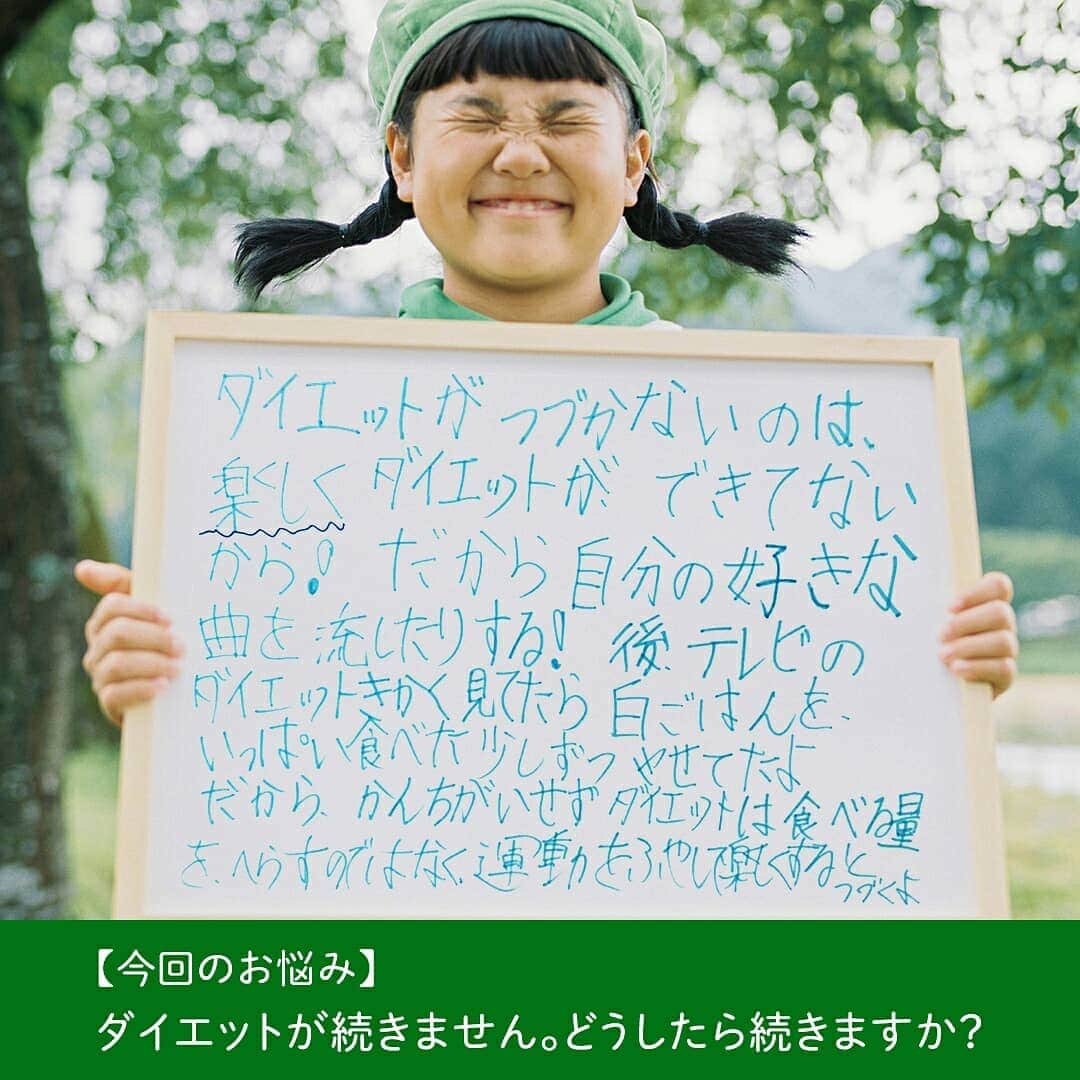 ダイエットがつづかないのは、
楽しくダイエットができてない
から！だから自分の好きな
曲を流したりする！後、テレビの
ダイエットきかく見てたら白ごはんを、
いっぱい食べた少しずつやせてたよ
だから、かんちがいせずダイエットは食べる量
を、へらすのではなく、運動をふやして楽しくすると
つづくよ
【今回のお悩み】
ダイエットが続きません。どうしたら続きますか？